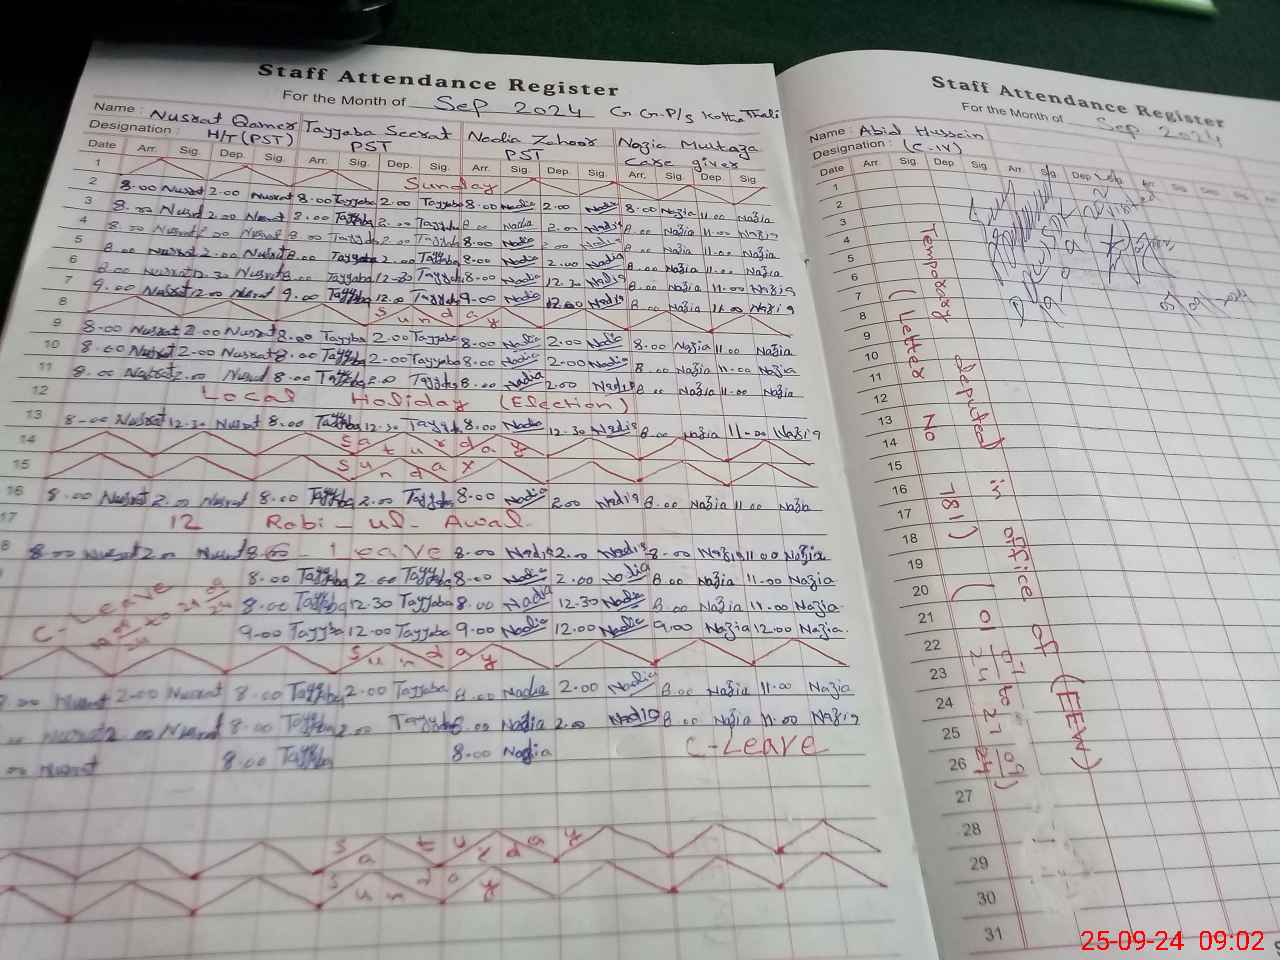 Staff Attendance Register
For the Month of Sep 2024 G.G.P/S Kotha Thali
Name : Nusrat Qamer Tayyaba Seerat Nadia Zahoor Nazia Multaza
Designation : H/T (PST) PST PST Care giver
Date Arr. Sig. Dep. Sig. Arr. Sig. Dep. Sig. Arr. Sig. Dep. Sig. Arr. Sig. Dep. Sig.
1 Sunday
2 8.00 Nusrat 2.00 Nusrat 8.00 Tayyaba 2.00 Tayyaba 8.00 Nadia 2.00 Nadia 8.00 Nazia 11.00 Nazia
3 8.00 Nusrat 2.00 Nusrat 8.00 Tayyaba 2.00 Tayyaba 8.00 Nadia 2.00 Nadia 8.00 Nazia 11.00 Nazia
4 8.00 Nusrat 2.00 Nusrat 8.00 Tayyaba 2.00 Tayyaba 8.00 Nadia 2.00 Nadia 8.00 Nazia 11.00 Nazia
5 8.00 Nusrat 2.00 Nusrat 8.00 Tayyaba 2.00 Tayyaba 8.00 Nadia 2.00 Nadia 8.00 Nazia 11.00 Nazia
6 8.00 Nusrat 12.30 Nusrat 8.00 Tayyaba 12.30 Tayyaba 8.00 Nadia 12.30 Nadia 8.00 Nazia 11.00 Nazia
7 9.00 Nusrat 12.00 Nusrat 9.00 Tayyaba 12.00 Tayyaba 9.00 Nadia 12.00 Nadia 8.00 Nazia 11.00 Nazia
8 Sunday
9 8.00 Nusrat 2.00 Nusrat 8.00 Tayyaba 2.00 Tayyaba 8.00 Nadia 2.00 Nadia 8.00 Nazia 11.00 Nazia
10 8.00 Nusrat 2.00 Nusrat 8.00 Tayyaba 2.00 Tayyaba 8.00 Nadia 2.00 Nadia 8.00 Nazia 11.00 Nazia
11 8.00 Nusrat 2.00 Nusrat 8.00 Tayyaba 2.00 Tayyaba 8.00 Nadia 2.00 Nadia 8.00 Nazia 11.00 Nazia
12 Local Holiday (Election)
13 8-00 Nusrat 12.30 Nusrat 8.00 Tayyaba 12.30 Tayyaba 8.00 Nadia 12.30 Nadia 8.00 Nazia 11.00 Nazia
14 Saturday
15 Sunday
16 8.00 Nusrat 2.00 Nusrat 8.00 Tayyaba 2.00 Tayyaba 8.00 Nadia 2.00 Nadia 8.00 Nazia 11.00 Nazia
17 12 Rabi-ul-Awal
8 8.00 Nusrat 2.00 Nusrat Leave 8.00 Nadia 2.00 Nadia 8.00 Nazia 11.00 Nazia
8.00 Tayyaba 2.00 Tayyaba 8.00 Nadia 2.00 Nadia 8.00 Nazia 11.00 Nazia
C-Leave 8.00 Tayyaba 12.30 Tayyaba 8.00 Nadia 12.30 Nadia 8.00 Nazia 11.00 Nazia
9.00 Tayyaba 12.00 Tayyaba 9.00 Nadia 12.00 Nadia 9.00 Nazia 12.00 Nazia
Sunday
.00 Nusrat 2.00 Nusrat 8.00 Tayyaba 2.00 Tayyaba 8.00 Nadia 2.00 Nadia 8.00 Nazia 11.00 Nazia
.00 Nusrat 2.00 Nusrat 8.00 Tayyaba 2.00 Tayyaba 8.00 Nadia 2.00 Nadia 8.00 Nazia 11.00 Nazia
.00 Nusrat 8.00 Tayyaba 8.00 Nadia C-Leave
Saturday
Sunday
Staff Attendance Register
For the Month of Sep 2024
Name : Abid Hussein
Designation : (C-IV)
Date Arr. Sig. Dep. Sig. Arr. Sig. Dep.
1
2
3
4
5
6
7
8
9
10
11
12
13
14
15
16
17
18
19
20
21
22
23
24
25
26
27
28
29
30
31
Temporary deputed in office of (EEW)
(Letter No 781)
25-09-24 09:02